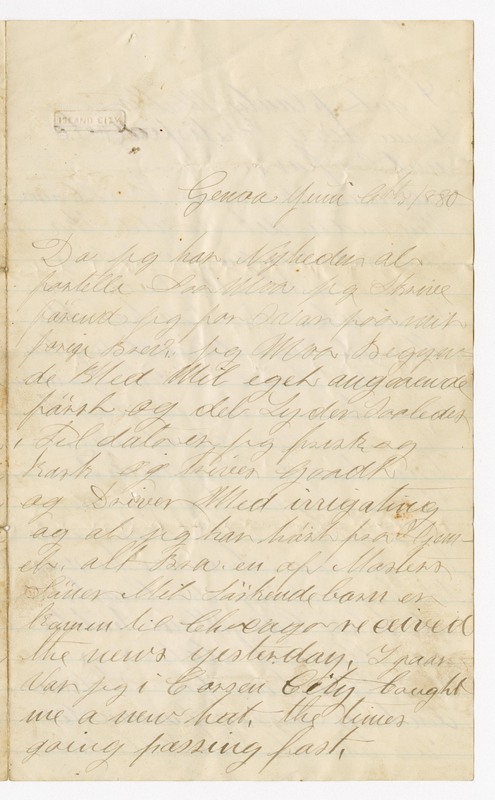 ISLAND CITY
Genoa Juni 1880
Da jeg har Nyheder at
fortelle Saa Maa jeg Skrive
førend jeg har Svar paa mit
forige Brev. jeg Maa Begyn-
de Med Mit eget angaaende
först og det Lyder Saaledes
Til dato er jeg frisk og
karsk og triver Goodt
og Driver Med irrigating
og at jeg har hört fra Hjem-
et. alt Bra. en af
Sönner Mit Söskendebarn er
kommen til Chicago received
the news yesterday,
Var jeg i Carson City bought
me a new hat. the times
going passing fast.